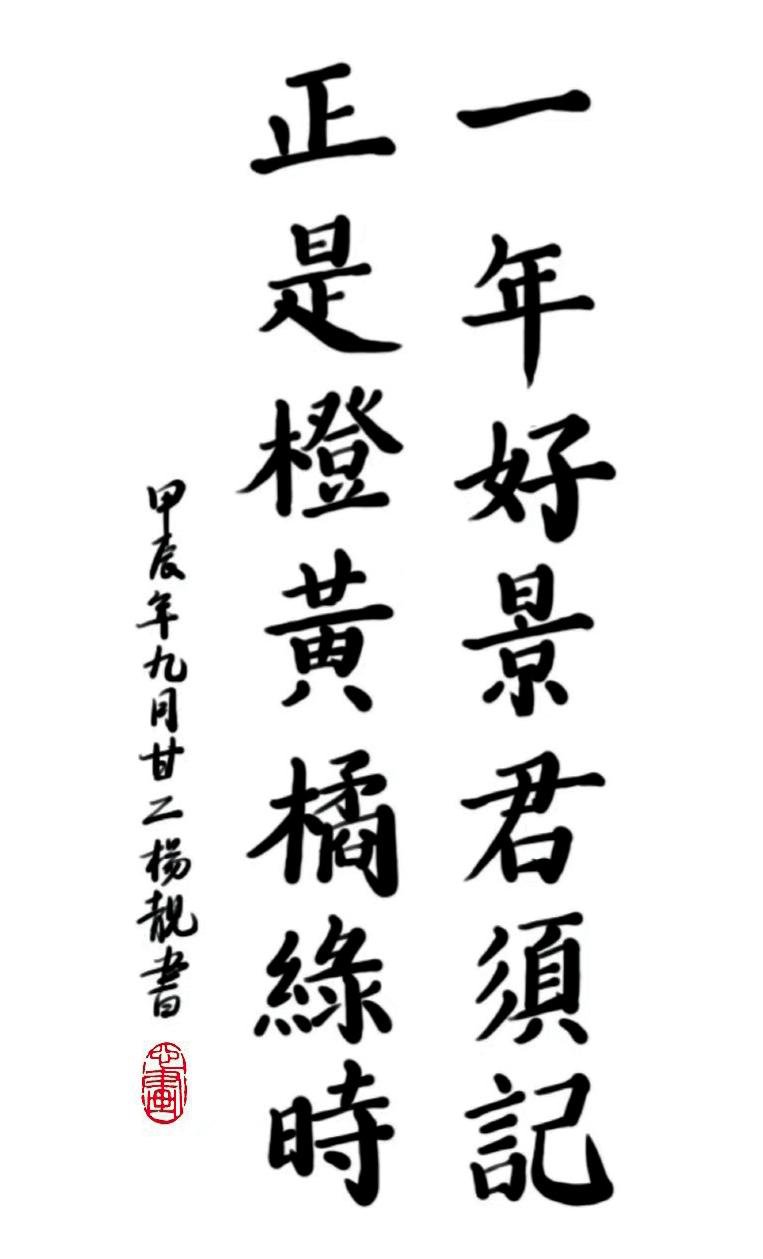 一年好景君須記
正是橙黃橘綠時
甲辰年九月廿二楊靚書
心畫